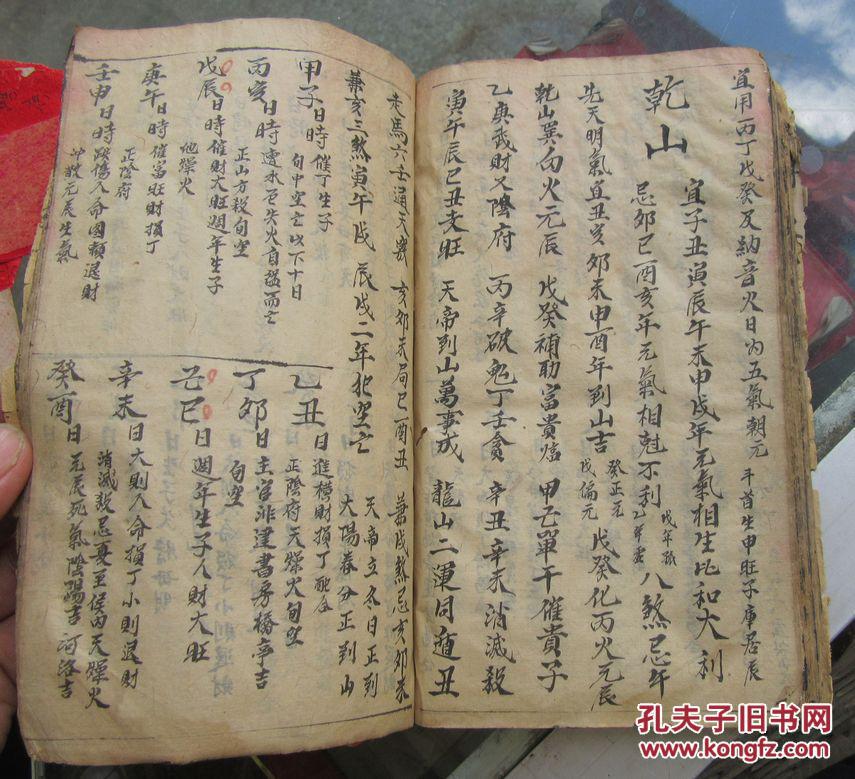 宜用丙丁戊癸及納音火日為五氣朝元 斗首生申旺子庫居辰
乾山 宜子丑寅辰午未申戌年元氣相生比和大利
忌卯巳酉亥年元氣相剋不利 八煞忌午
先天明氣宜丑亥卯未申酉年到山吉 癸正元 戊偏元 戊癸化丙火元辰
乾山巽向火元辰 戊癸補助富貴 甲乙單干催貴子
乙庚武財又陰府 丙辛破鬼丁壬貪 辛丑辛未消滅殺
寅午辰巳丑支旺 天帝到山萬事成 龍山二運同遁丑
走馬六壬通天竅 亥卯未局巳酉丑 兼戌煞忌亥卯未
兼亥三煞寅午戌 辰戌二年犯空亡 天帝立冬日正到
太陽春分正到山
甲子日時 催丁生子
旬中空亡 以下十日
丙寅日時 遭水厄失火自縊而亡
正山方殺旬空
戊辰日時 催財大旺週年生子
地燥火
庚午日時 催富旺財損丁
正陰府
壬申日時 跌傷人命図賴退財
沖散元辰生氣
乙丑日 進橫財損丁配合
正陰府天燥火旬空
丁卯日 主官非建書房橋亭吉
旬空
己巳日 週年生子人財大旺
辛未日 大則人命損丁小則退財
消滅殺忌妻主侯內天燥火
癸酉日 元辰死氣陰陽吉河洛吉
孔夫子旧书网
www.kongfz.com